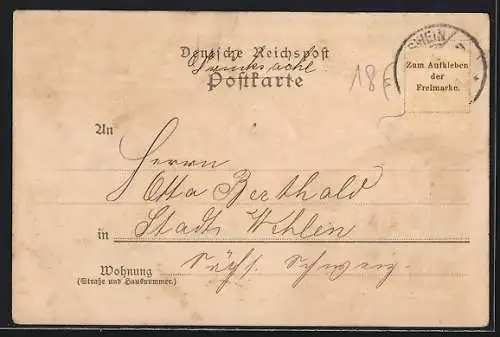 Deutsche Reichspost
Drucksache
Postkarte
18
Zum Aufkleben
der
Freimarke.
An
Herrn
Otto Berthold
in Stadt Wehlen
Wohnung Sächs. Schweiz.
(Straße und Hausnummer.)